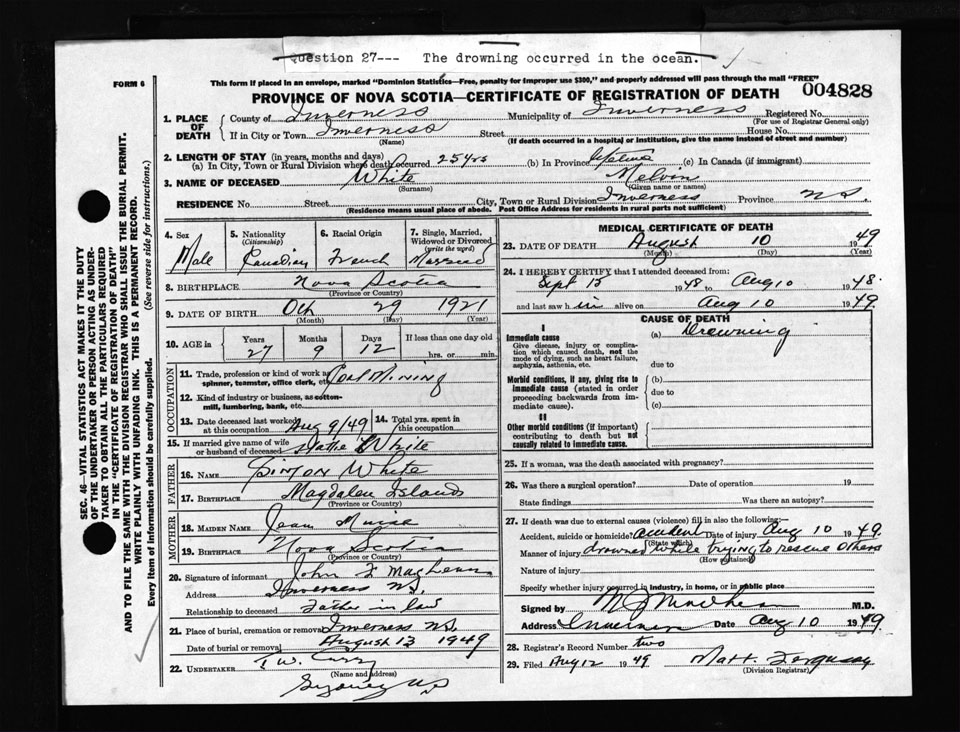 Question 27--- The drowning occurred in the ocean.
FORM 6
This form if placed in an envelope, marked "Dominion Statistics—Free, penalty for improper use $300," and properly addressed will pass through the mail "FREE"
PROVINCE OF NOVA SCOTIA—CERTIFICATE OF REGISTRATION OF DEATH
004828
1. PLACE OF DEATH
County of Inverness Municipality of Inverness Registered No.
(For use of Registrar General only)
If in City or Town Inverness Street House No.
(Name) (If death occurred in a hospital or institution, give the name instead of street and number)
2. LENGTH OF STAY (in years, months and days)
(a) In City, Town or Rural Division where death occurred 25 yrs (b) In Province lifetime (c) In Canada (if immigrant)
3. NAME OF DECEASED White Melvin
(Surname) (Given name or names)
RESIDENCE No. Street City, Town or Rural Division Inverness Province N.S.
(Residence means usual place of abode. Post Office Address for residents in rural parts not sufficient)
4. Sex
Male
5. Nationality
(Citizenship)
Canadian
6. Racial Origin
French
7. Single, Married, Widowed or Divorced
(write the word)
Married
8. BIRTHPLACE Nova Scotia
(Province or Country)
9. DATE OF BIRTH Oct 29 1921
(Month) (Day) (Year)
10. AGE in Years Months Days If less than one day old
27 9 12 hrs. or min.
OCCUPATION
11. Trade, profession or kind of work as spinner, teamster, office clerk, etc. Coal Mining
12. Kind of industry or business, as cotton-mill, lumbering, bank, etc.
13. Date deceased last worked at this occupation Aug 9/49
14. Total yrs. spent in this occupation
15. If married give name of wife or husband of deceased White
FATHER
16. NAME Simon White
17. BIRTHPLACE Magdalen Islands
(Province or Country)
MOTHER
18. MAIDEN NAME Jean
19. BIRTHPLACE Nova Scotia
(Province or Country)
20. Signature of informant John
Address Inverness N.S.
Relationship to deceased Father in law
21. Place of burial, cremation or removal Inverness N.S.
Date of burial or removal August 13 1949
22. UNDERTAKER T.W. Curry
(Name and address)
Sydney N.S.
MEDICAL CERTIFICATE OF DEATH
23. DATE OF DEATH August 10 1949
(Month) (Day) (Year)
24. I HEREBY CERTIFY that I attended deceased from:
Sept 13 1948 to Aug 10 1948.
and last saw him alive on Aug 10 1949.
CAUSE OF DEATH
I
Immediate cause
Give disease, injury or complication which caused death, not the mode of dying, such as heart failure, asphyxia, asthenia, etc.
(a) Drowning
due to
Morbid conditions, if any, giving rise to immediate cause (stated in order proceeding backwards from immediate cause).
(b)
due to
(c)
II
Other morbid conditions (if important) contributing to death but not causally related to immediate cause.
25. If a woman, was the death associated with pregnancy?
26. Was there a surgical operation? Date of operation 19
State findings Was there an autopsy?
27. If death was due to external causes (violence) fill in also the following:
Accident, suicide or homicide? accident Date of injury Aug 10 1949.
(State which)
Manner of injury drowned while trying to rescue others
(How sustained)
Nature of injury
Specify whether injury occurred in industry, in home, or in public place
Signed by M.D.
Address Inverness Date Aug 10 1949.
28. Registrar's Record Number two
29. Filed Aug 12 1949 Matt. Ferguson
(Division Registrar)
SEC. 46—VITAL STATISTICS ACT MAKES IT THE DUTY
OF THE UNDERTAKER OR PERSON ACTING AS UNDER-
TAKER TO OBTAIN ALL THE PARTICULARS REQUIRED
IN THE "CERTIFICATE OF REGISTRATION OF DEATH"
AND TO FILE THE SAME WITH THE DIVISION REGISTRAR WHO SHALL ISSUE THE BURIAL PERMIT.
WRITE PLAINLY WITH UNFADING INK. THIS IS A PERMANENT RECORD.
Every item of information should be carefully supplied. (See reverse side for instructions.)